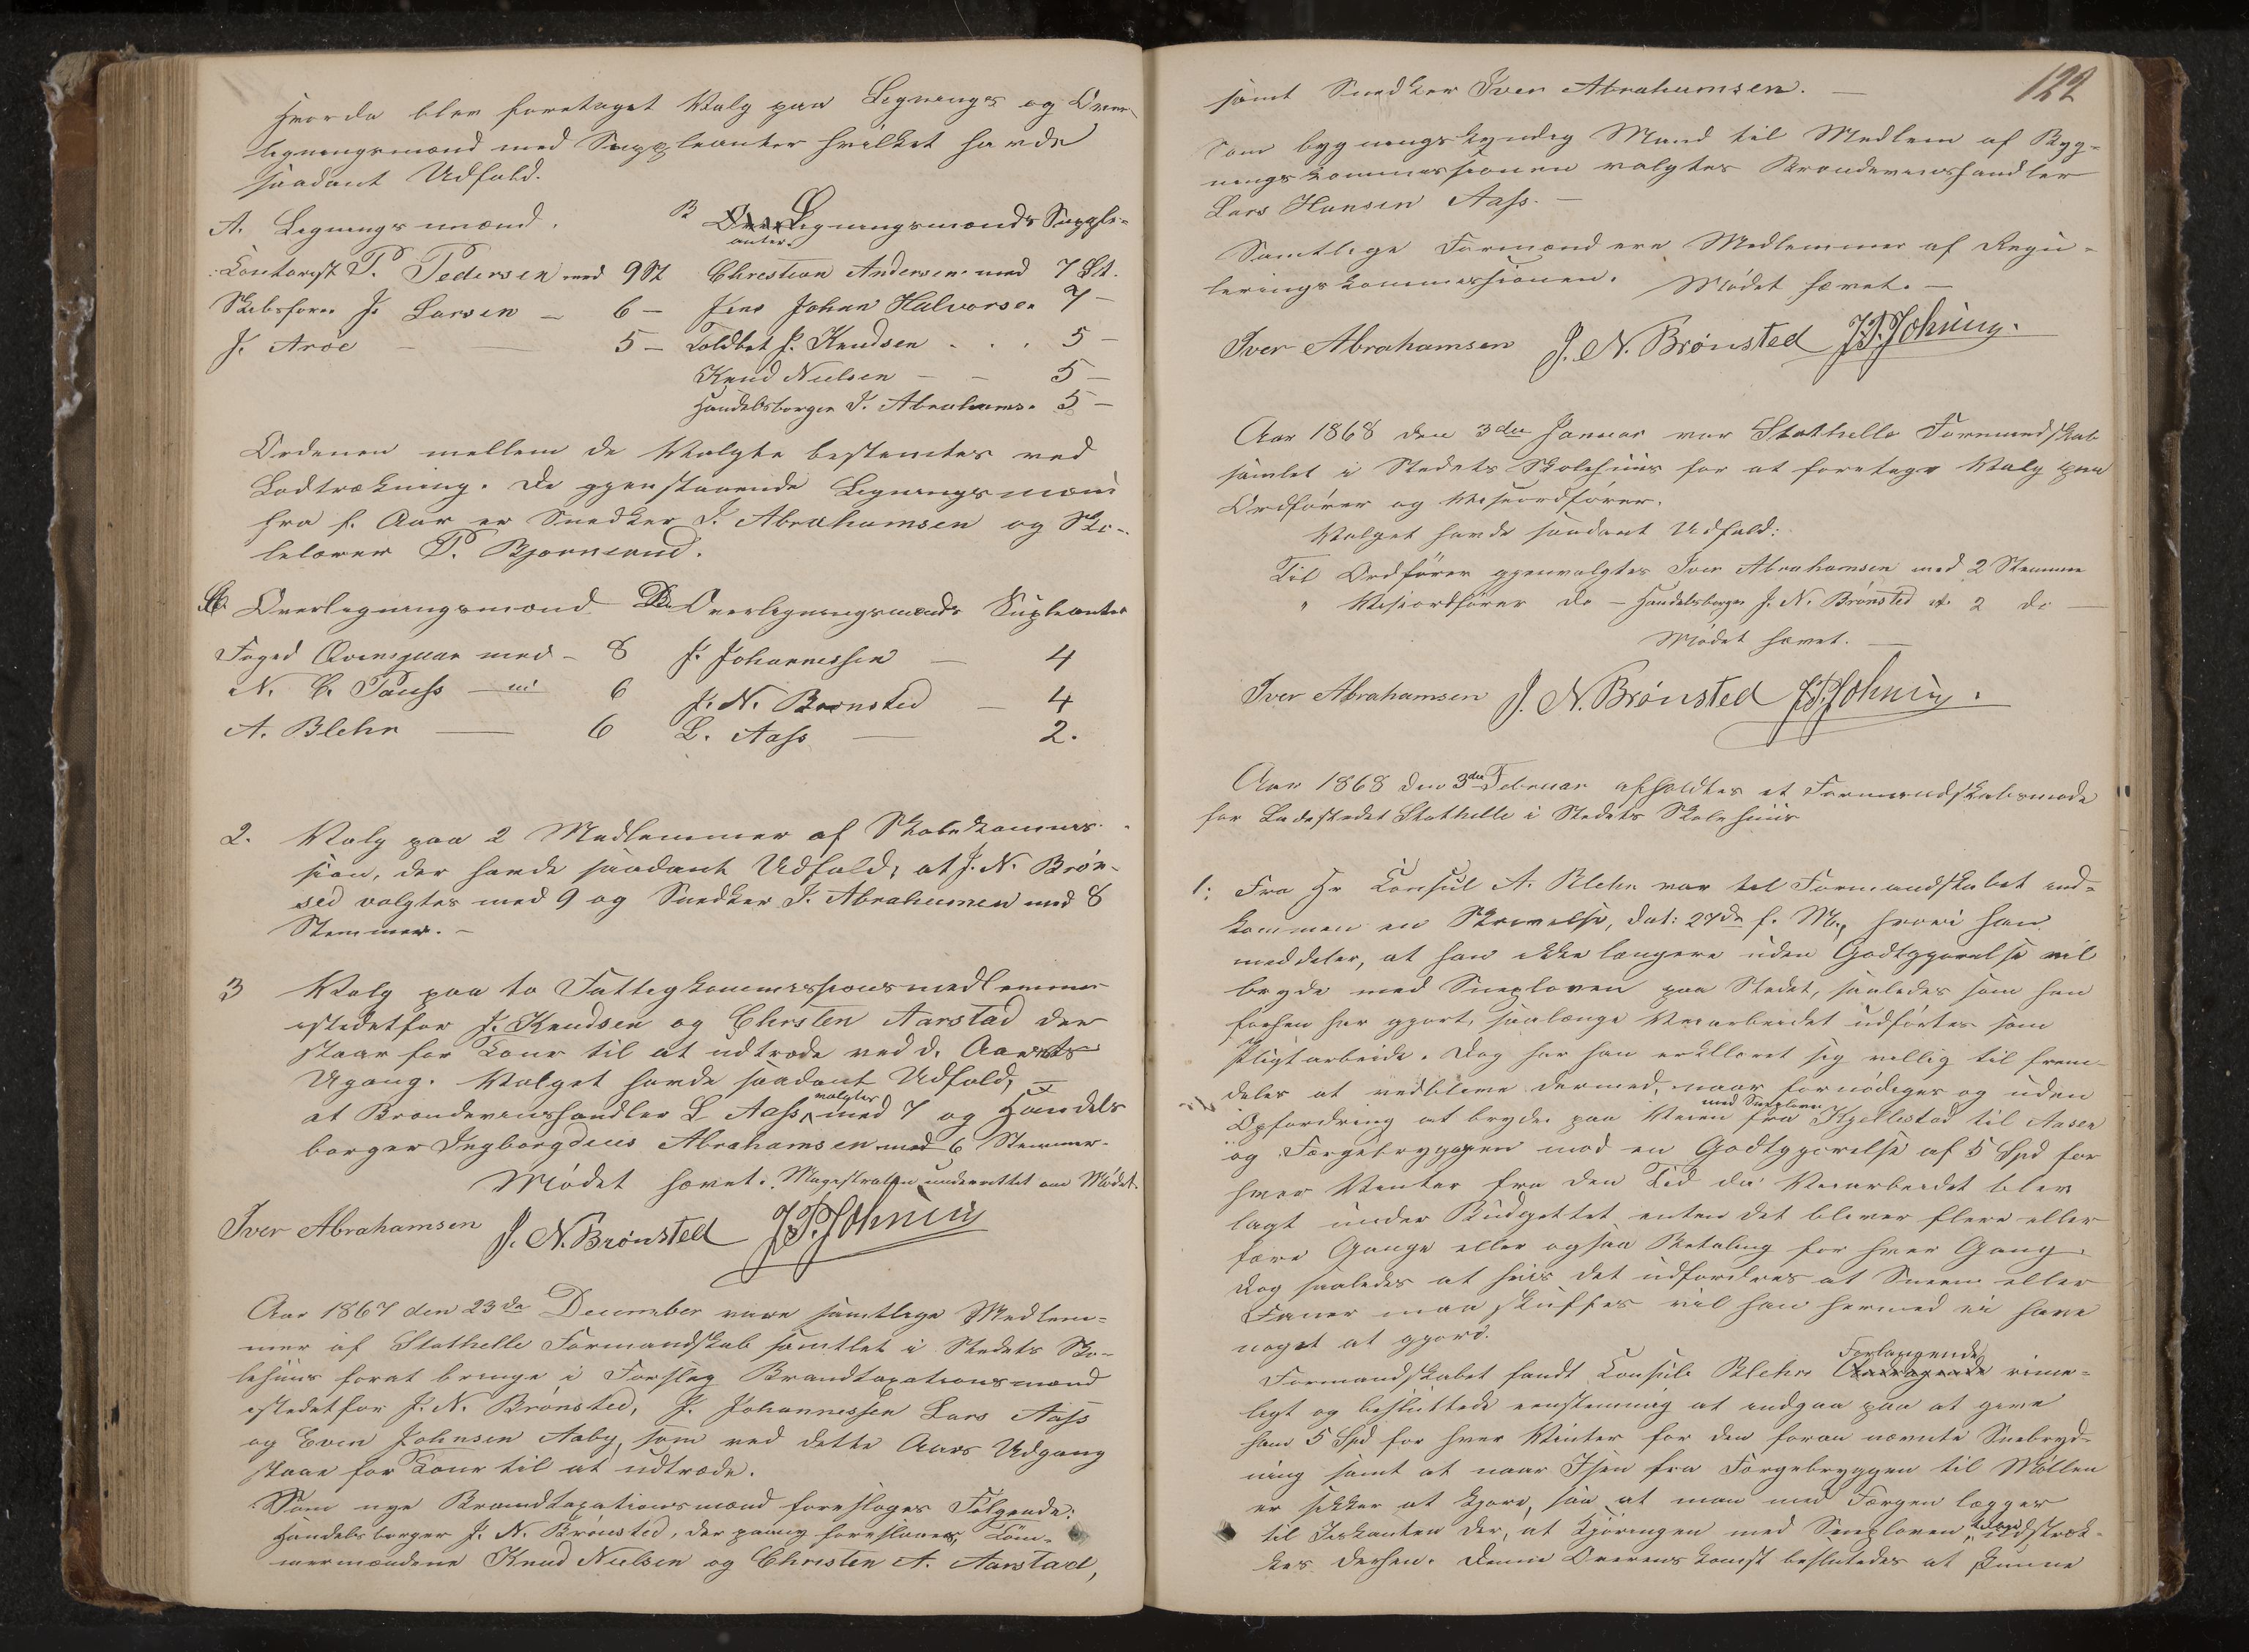 hvorda blev foretaget Valg paa Lignings og Over-
ligningsmænd med Suppleanter hvilket havde
saadant Udfald.
A. Lignings mænd.
Kontorist P. Pedersen med 9 St
Skibsfører J. Larsen — 6 —
J. Aröe — 5 —
B Over Ligningsmænds Supple-
anter.
Christian Andersen med 7 St.
Jens Johan Halvorsen 7 —
Toldbet J. Knudsen . . . 5 —
Knud Nielsen — — 5 —
Handelsborger I. Abrahams. 5 —
Ordenen mellem de Valgte bestemtes ved
Lodtrækning. De gjenstaaende Ligningsmænd
fra f. Aar er Snedker I. Abrahamsen og Sko-
lelærer P. Bjornland.
C Overligningsmænd
Foged Qvensguar med - 8
N. C. Pauss — 6
A. Blehr — 6
D. Overligningsmænds Supleanter
J. Johannessen — 4
J. N. Brønsted — 4
L. Aass — 2.
2. Valg paa 2 Medlemmer af Skolekommis-
sion, der havde saadant Udfald, at J. N. Brøn-
sed valgtes med 9 og Snedker I. Abrahamsen med 8
Stemmer. —
3 Valg paa to Fattigkommissionsmedlemmer
istedetfor J. Knudsen og Chrsten Aarstad der
staar for Tour til at udtræde ved d. Aarets
Ugang. Valget havde saadant Udfald,
at Brændevinshandler L Aass valgtes med 7 og Handels
borger Ingborgdius Abrahamsen med 6 Stemmer.
Mødet hævet. Magistraten underrettet om Mødet.
Iver Abrahamsen J. N. Brønsted J. P. Johnsen
Aar 1867 den 23de December vare samtlige Medlem-
mer af Stathelle Formandskab samtlet i Stedets Sko-
lehuus forat bringe i Forslag Brandtaxationsmænd
istedetfor J. N. Brønsted, J. Johannessen Lars Aass
og Even Johnsen Aaby, som ved dette Aars Udgang
staar for Tour til at udtræde.
Som nye Brandtaxationsmænd foresloges Følgende:
Handelsborger J. N. Brønsted, der paany foreslaaes, Tøm-
mermændene Knud Nielsen og Christen A. Aarstad,
122
samt Snedker Iver Abrahamsen. —
Som bygningskyndig Mand til Medlem af Byg-
ningskommissionen valgtes Brændevinshandler
Lars Hansen Aass. —
Samtlige Formænd ere Medlemmer af Regu-
leringskommissionen. Mødet hævet. —
Iver Abrahamsen J. N. Brønsted J. P. Johnsen
Aar 1868 den 3die Januar var Stathelle Formandskab
samlet i Stedets Skolehuus for at foretage Valg paa
Ordfører og Viseordfører.
Valget havde saadant Udfald:
Til Ordfører gjenvalgtes Iver Abrahamsen med 2 Stemmer
" Viseordfører do — Handelsborger J. N. Brønsted 2 do —
Mødet hævet. —
Iver Abrahamsen J. N. Brønsted J. P. Johnsen
Aar 1868 den 3die Februar afholdtes et Formandskabsmøde
for Ladestedet Stathelle i Stedets Skolehuus
1: Fra Hr Konsul A. Blehr var til Formandskabet ind-
kommen en Skrivelse, dat: 27de f. M., hvori han
meddeler, at han ikke længere uden Godtgjørelse vil
bryde med Sneeploven paa Stedet, saaledes som han
forhen har gjort, saalænge Veiarbeidet udførtes som
Pligtarbeide. Dog har han erklæret sig villig til frem-
deles at vedblive dermed, naar fornødiges og uden
Opfordring at bryde med Sneploven paa Veien fra Kjellestad til Aasen
og Færgebryggen mod en Godtgjørelse af 5 Spd for
hver Vinter fra den Tid da Veiarbeidet blev
lagt under Budgettet enten det bliver flere eller
færre Gange eller ogsaa Betaling for hver Gang.
Dog saaledes at hvis det udfordres at Sneen eller
Faner maa skuffes vil han hermed ei have
noget at gjøre.
Formandskabet fandt Konsul Blehrs Andragende Forlangende rime-
ligt og besluttede eenstemmig at indgaa paa at give
ham 5 Spd for hver Vinter for den foran nævnte Snebryd-
ning samt at naar Isen fra Færgebryggen til Møllen
er sikker at kjøre, saa at man med Færgen lægger
til Iskanten der, at Kjøringen med Sneploven tillige udstræk-
kes derhen. Denne Overenskomst besluttedes at kunne